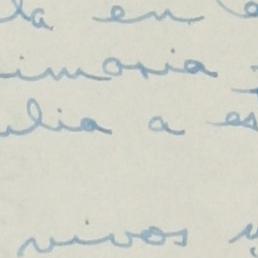 la en
imonia
ulia a es
vivos y